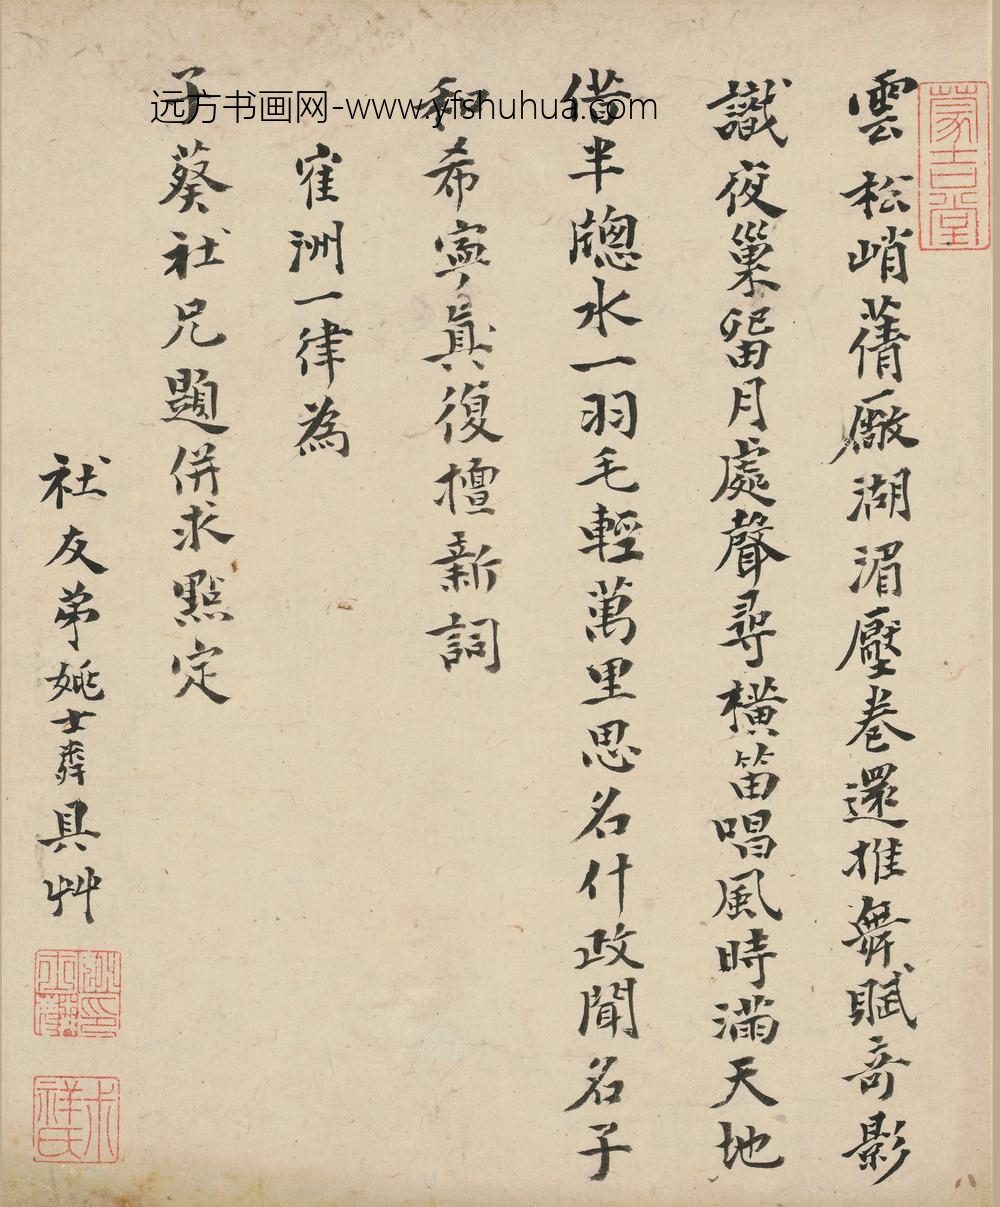 蒙吉堂
雲松峭蒨厰湖湄壓卷還推舞賦奇影
識夜巢留月處聲尋橫笛唱風時滿天地
借半牕水一羽毛輕萬里思名什政聞名子
和希寧真復檀新詞
寉洲一律為
子葵社兄題併求點定
社友弟姚士粦具艸
远方书画网-www.yfshuhua.com